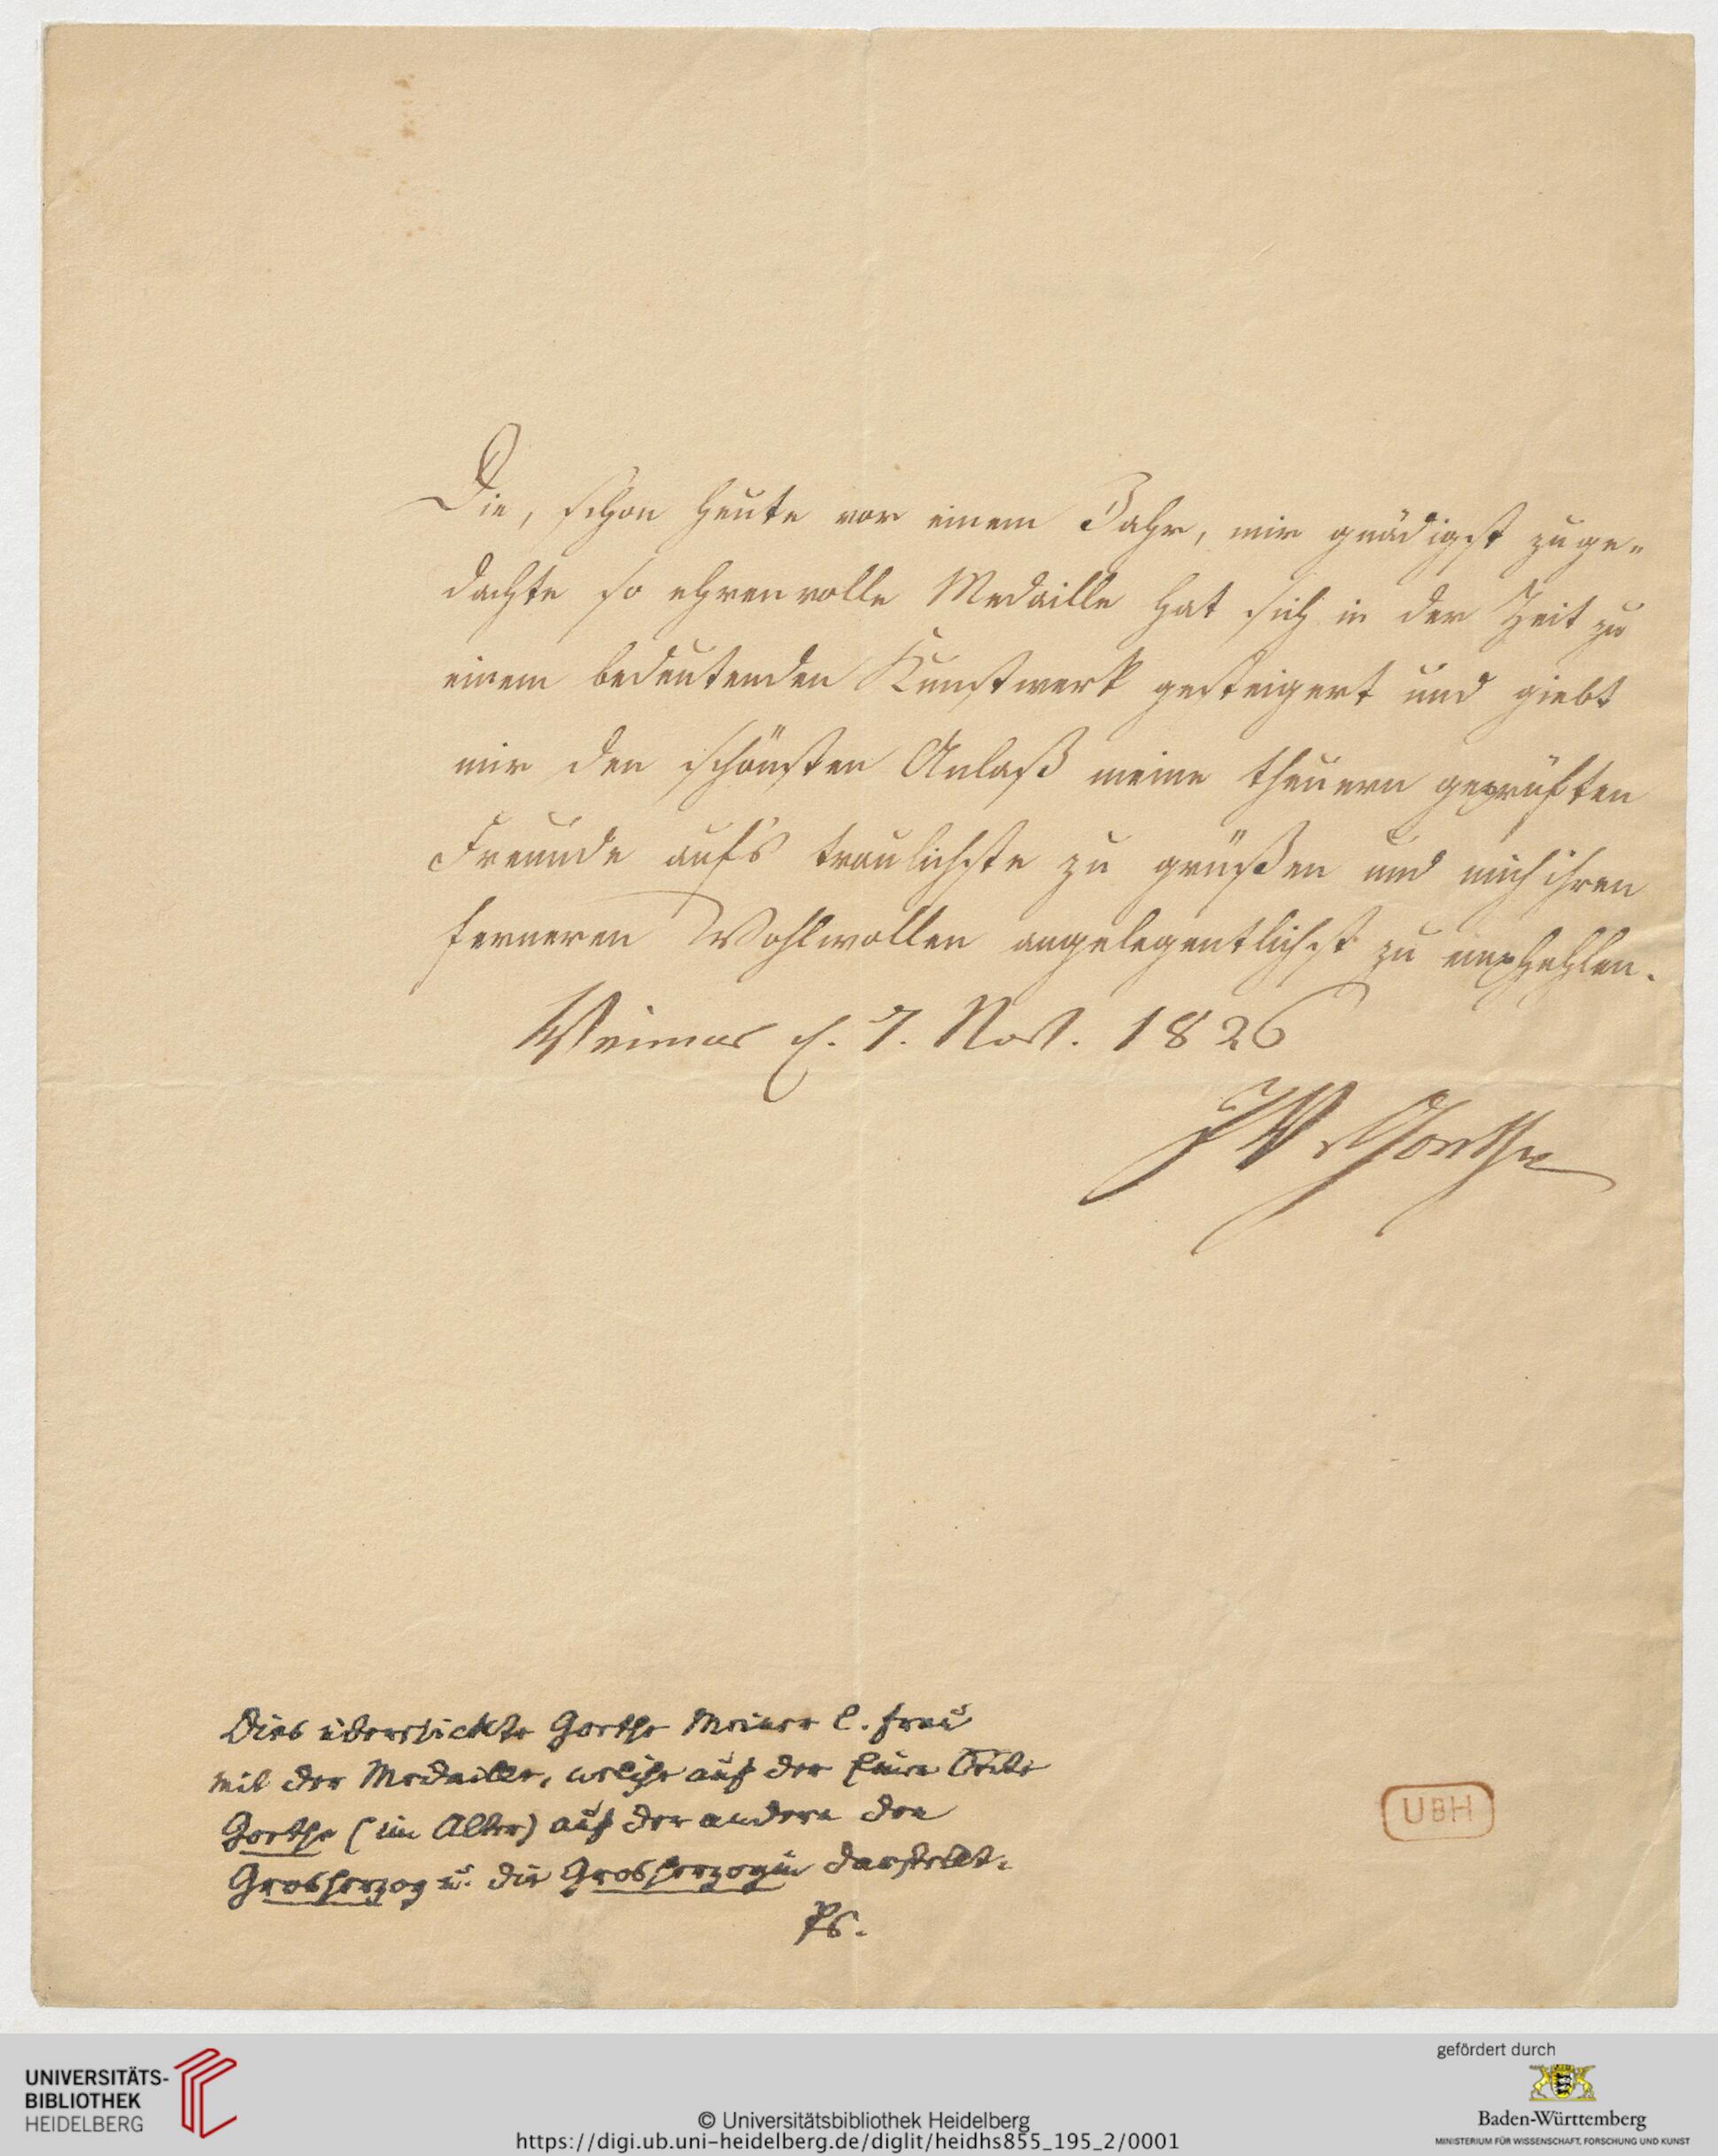 Die, schon heute vor einem Jahr, mir gnädigst zuge-
dachte so ehrenvolle Medaille hat sich in der Zeit zu
einem bedeutenden Kunstwerk gesteigert und giebt
mir den schönsten Anlaß meine theuern geprüften
Freunde aufs traulichste zu grüßen und mich ihren
ferneren Wohlwollen angelegentlichst zu empfehlen.
Weimar d. 7. Nov. 1826
JWvGoethe
Dies überschickte Goethe Meiner l. Frau
mit der Medaille, welche auf der Einen Seite
Goethe (im Alter) auf der andern den
Grosherzog u. die Grosherzogin darstellt.
Ps.
UBH
UNIVERSITÄTS-
BIBLIOTHEK
HEIDELBERG
© Universitätsbibliothek Heidelberg
https://digi.ub.uni-heidelberg.de/diglit/heidhs855_195_2/0001
gefördert durch
Baden-Württemberg
MINISTERIUM FÜR WISSENSCHAFT, FORSCHUNG UND KUNST